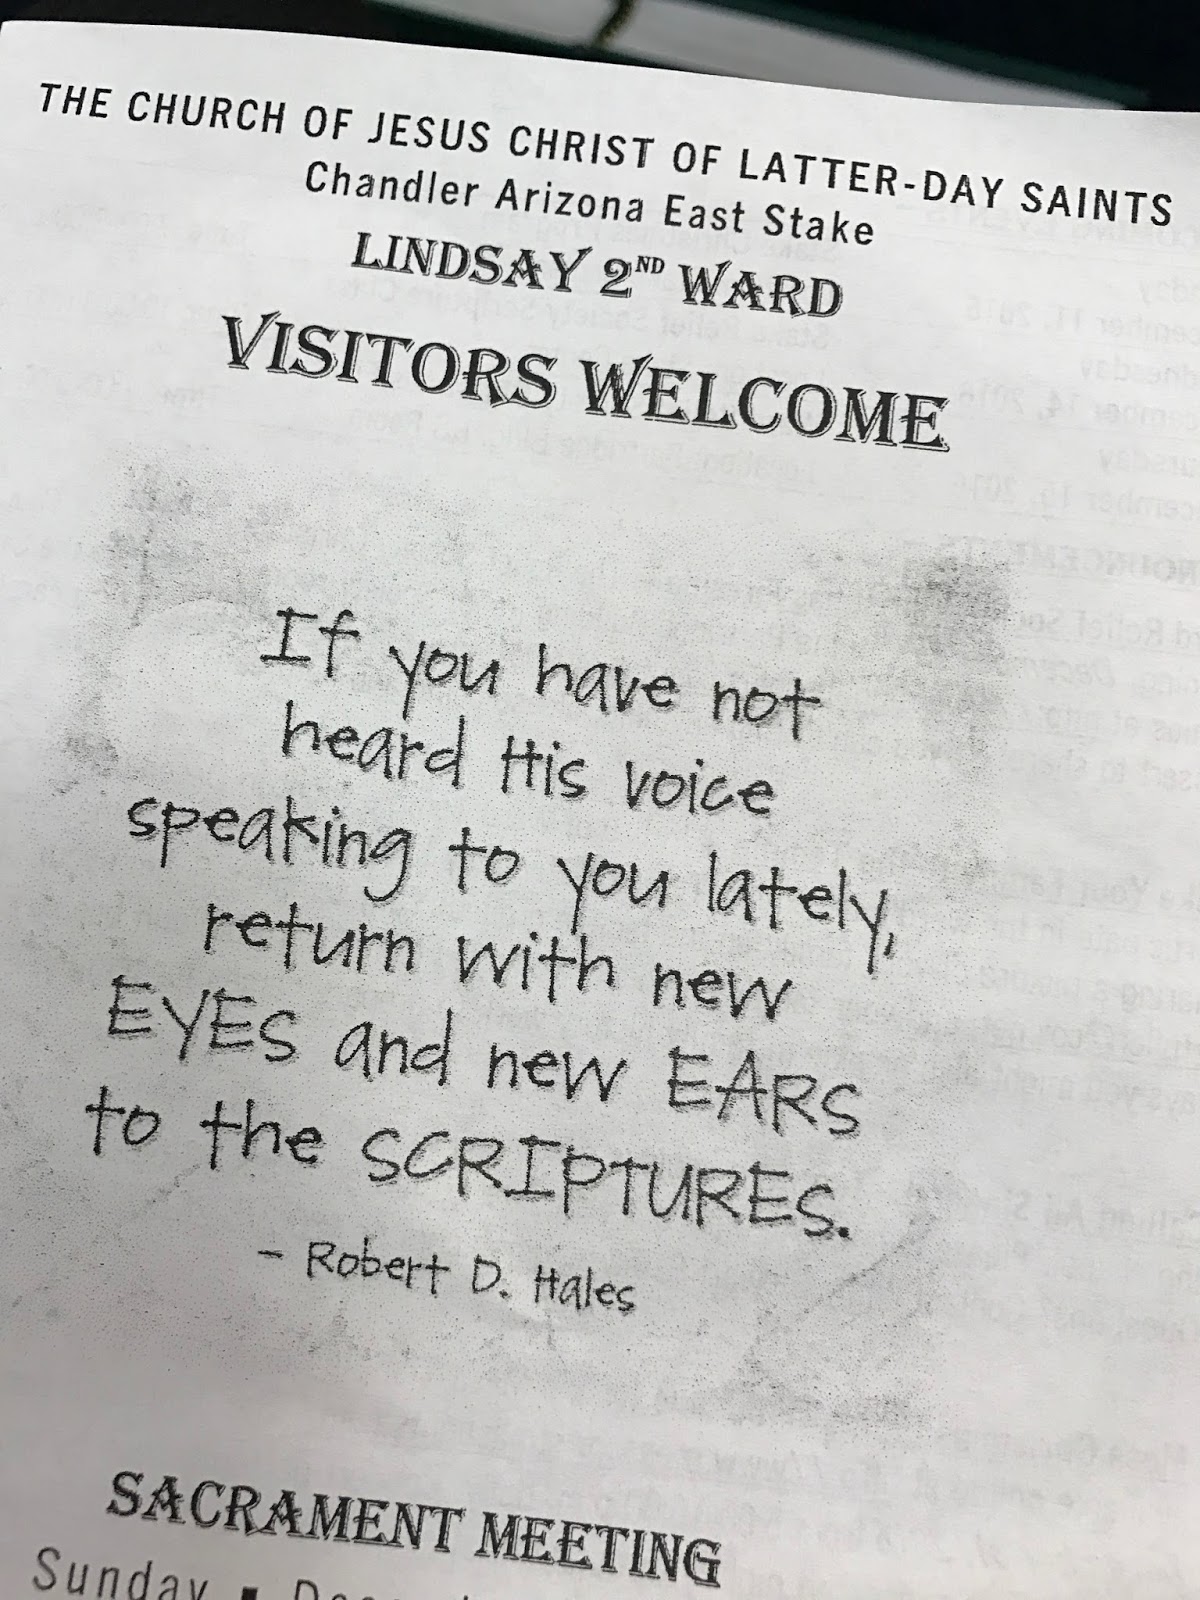 THE CHURCH OF JESUS CHRIST OF LATTER-DAY SAINTS
Chandler Arizona East Stake
LINDSAY 2ND WARD
VISITORS WELCOME
If you have not
heard His voice
speaking to you lately,
return with new
EYES and new EARS
to the SCRIPTURES.
- Robert D. Hales
SACRAMENT MEETING
Sunday ▪